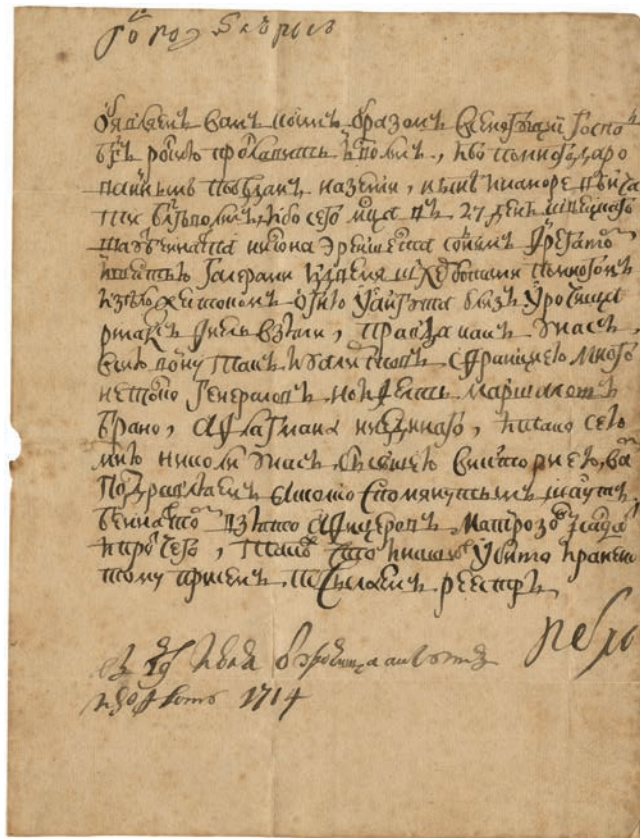 Объявляемъ вамъ коимъ образомъ всемогущий Господь
Богъ россию прославить изволилъ, ибо по многодаро
ваннымъ победамъ на земли, ныне и на море венчати
благоволилъ, ибо сего мца въ 27 день шведцкого
шаубенахта нилсона Эреншелта с однимъ Фрегатом
и шестью галерами и двемя шхерботами по многомъ
и зело жестокомъ огню у Ангута близъ урочища
рилаксъ Фиель взяли, правда какъ у насъ,
в сию войну такъ и у алиртовъ с Францыею много
не токмо генераловъ, но и Фелть маршаловъ
брано, а Флагмана ни единаго, и тако сею
мню николи у насъ бывшею викториею, вам
поздравляемъ а колико с помянутымъ шаут
бенахтом взято афицеровъ матрозов и салдат
и протчего, такъже что нашихъ убито и ранено
тому при семъ посылаемъ реестръ
Петръ
1714